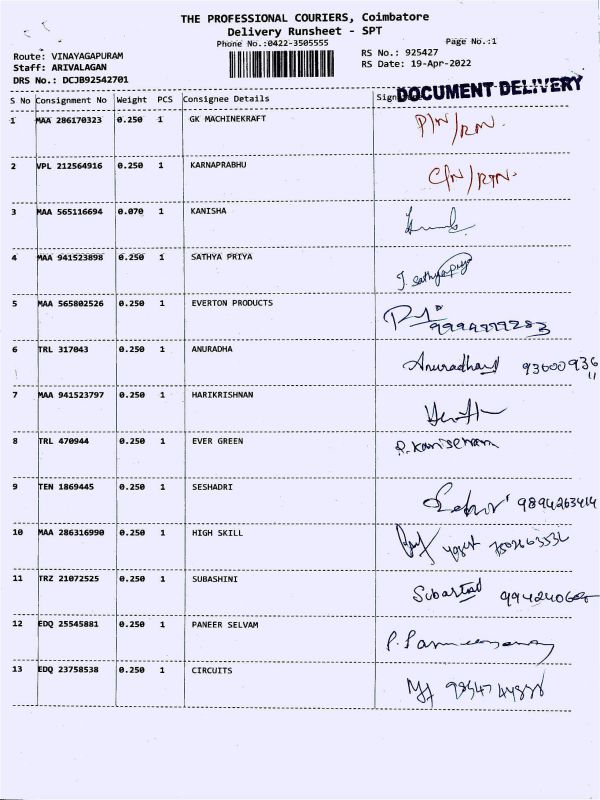 THE PROFESSIONAL COURIERS, Coimbatore
Delivery Runsheet - SPT
Phone No.:0422-3505555
Page No.:1
Route: VINAYAGAPURAM
RS No.: 925427
Staff: ARIVALAGAN
RS Date: 19-Apr-2022
DRS No.: DCJB92542701
DOCUMENT DELIVERY
S No Consignment No Weight PCS Consignee Details
1 MAA 286170323 0.250 1 GK MACHINEKRAFT P/N/RN.
2 VPL 212564916 0.250 1 KARNAPRABHU C/N/RTN.
3 MAA 565116694 0.070 1 KANISHA
4 MAA 941523898 0.250 1 SATHYA PRIYA J. Sathyapriya
5 MAA 565802526 0.250 1 EVERTON PRODUCTS
6 TRL 317043 0.250 1 ANURADHA Anuradha 93600936
11
7 MAA 941523797 0.250 1 HARIKRISHNAN
8 TRL 470944 0.250 1 EVER GREEN
9 TEN 1869445 0.250 1 SESHADRI 9894263414
10 MAA 286316990 0.250 1 HIGH SKILL
11 TRZ 21072525 0.250 1 SUBASHINI
12 EDQ 25545881 0.250 1 PANEER SELVAM
13 EDQ 23758538 1 0.250 CIRCUITS